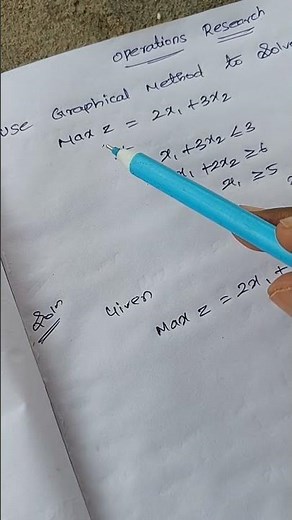 Operations Research
Use Graphical Method to Solve
Max z = 2x₁ + 3x₂
x₁ + 3x₂ ≤ 3
x₁ + 2x₂ ≥ 6
x₁ ≥ 5
Soln
Given
Max z = 2x₁ +